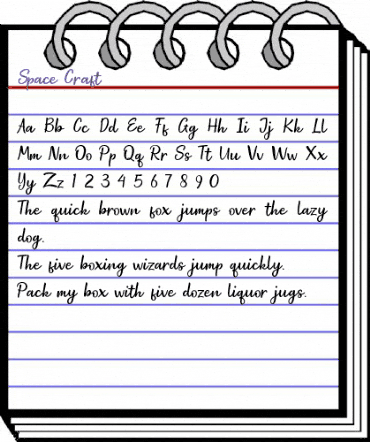 Space Craft
Aa Bb Cc Dd Ee Ff Gg Hh Ii Jj Kk Ll
Mm Nn Oo Pp Qq Rr Ss Tt Uu Vv Ww Xx
Yy Zz 1 2 3 4 5 6 7 8 9 0
The quick brown fox jumps over the lazy
dog.
The five boxing wizards jump quickly.
Pack my box with five dozen liquor jugs.